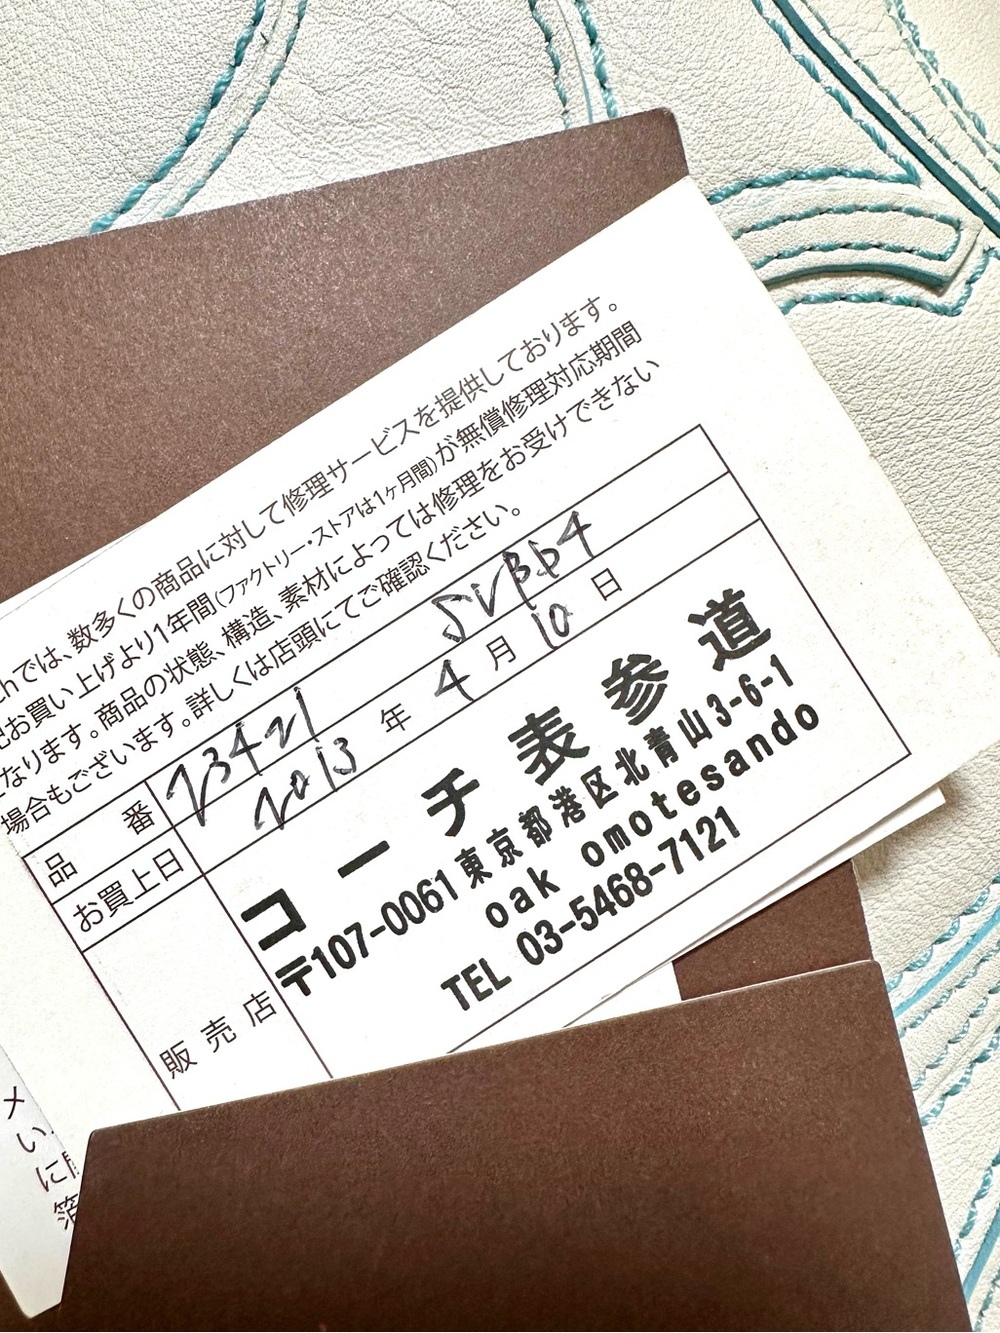 hでは、数多くの商品に対して修理サービスを提供しております。
お買い上げより1年間(ファクトリー・ストアは1ヶ月間)が無償修理対応期間
なります。商品の状態、構造、素材によっては修理をお受けできない
場合もございます。詳しくは店頭にてご確認ください。
品 番 23421 SVBD4
お買上日 2013 年 4 月 10 日
販売店
コーチ表参道
〒107-0061 東京都港区北青山3-6-1
oak omotesando
TEL 03-5468-7121
メ
い
に